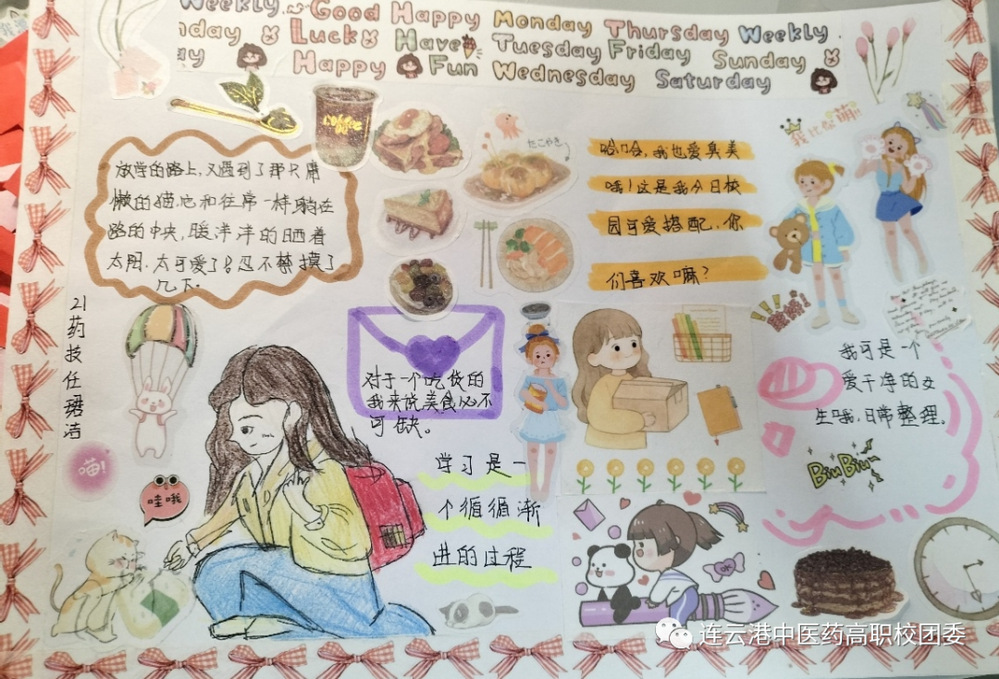 Weekly Good Happy Monday Thursday Weekly
nday Luck Have Tuesday Friday Sunday
ay Happy Fun Wednesday Saturday
放学的路上,又遇到了那只慵
懒的猫,它和往常一样躺在
路的中央,暖洋洋的晒着
太阳,太可爱了!忍不禁摸了
几下。
哈哈,我也爱臭美
哦!这是我今日校
园可爱搭配,你
们喜欢嘛?
21药技任珺洁
对于一个吃货的
我来说美食必不
可缺。
我可是一个
爱干净的女
生哦,日常整理。
喵!
哇哦
学习是一
个循循渐
进的过程
BiuBiu
连云港中医药高职校团委